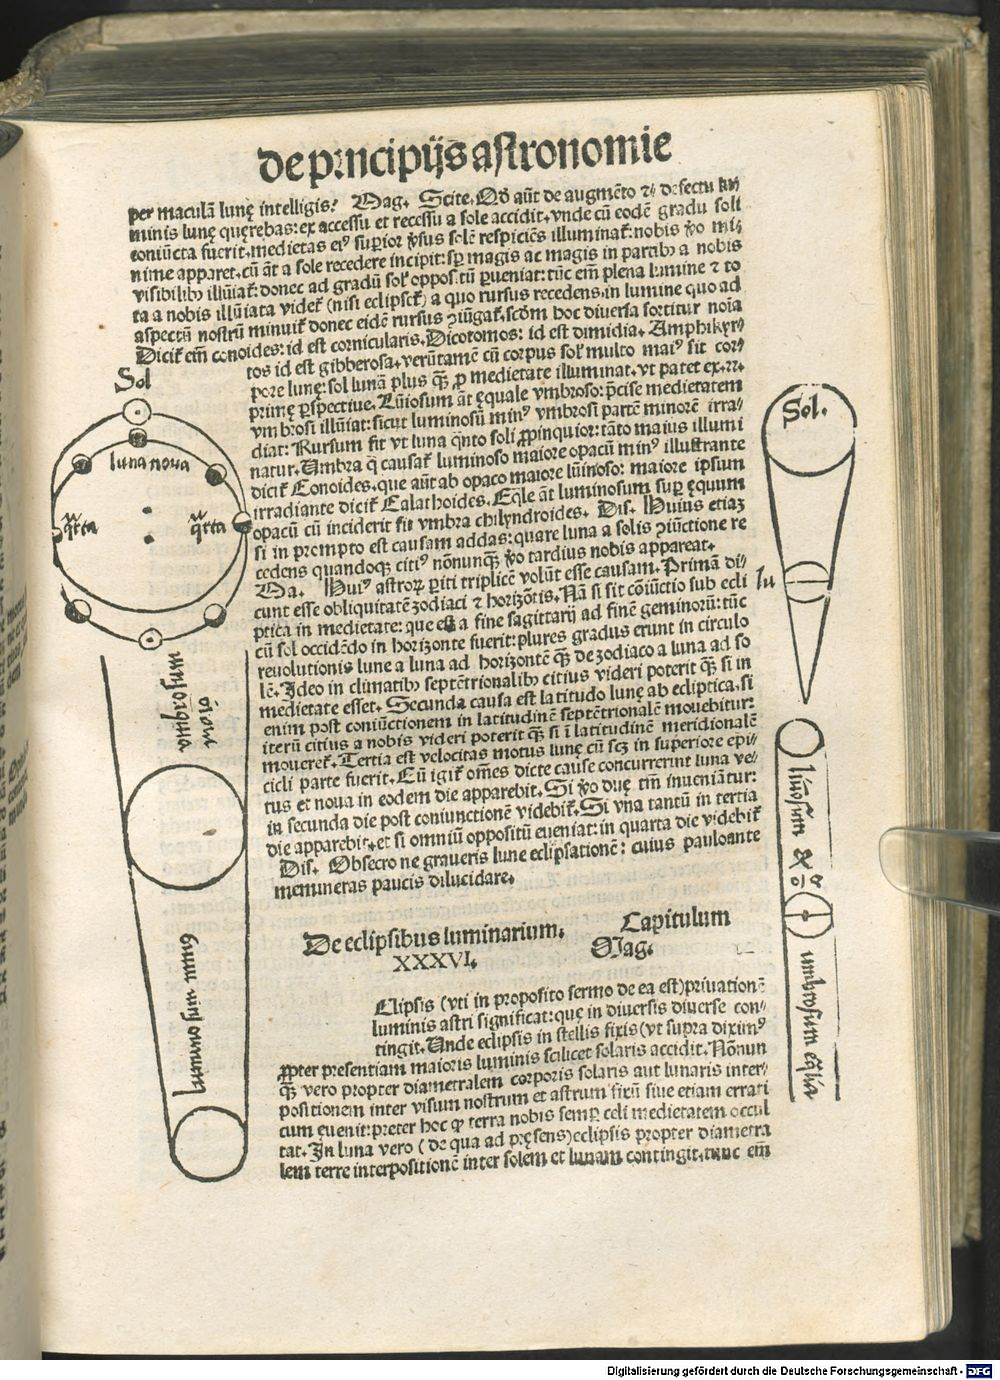 de prĩncipijs astronomie
per maculã lunę intelligis? Mag. Scite. Qđ aũt de augmẽto ⁊ defectu lu⸗
minis lunę quęrebas: ex accessu et recessu a sole accidit. vnde cũ eodẽ gradu soli
coniũcta fuerit. medietas eiꝰ supior ṽsus solẽ respiciẽs illuminat̃: nobis ṽo mi⸗
nime apparet. cũ ãt a sole recedere incipit: sp̱ magis ac magis in partibꝫ a nobis
visibilibꝫ illũiat̃: donec ad gradũ sol̃ oppositũ ꝑueniat: tũc em̃ plena lumine ⁊ to
ta a nobis illũiata videt̃ (nisi eclipset̃) a quo rursus recedens. in lumine quo ad
aspectũ nostrũ minuit̃ donec eidẽ rursus ꝯiũgat̃. scďm hoc diuersa sortitur noĩa
Dicit̃ em̃ conoides: id est cornicularis. Dicotomos: id est dimidia. Amphikyr⸗
tos id est gibberosa. verũtamẽ cũ corpus sol̃ multo maiꝰ sit cor⸗
pore lunę: sol lunã plus q̃ꝫ ꝓ medietate illuminat. vt patet ex. ⁊⁊.
primę ꝑspectiue. Lũiosum ãt ęquale vmbroso: p̃cise medietatem
vmbrosi illũiat: sicut luminosũ minꝰ vmbrosi partẽ minorẽ irra⸗
diat: Rursum fit vt luna q̃nto soli ꝓpinquior: tãto maius illumi
natur. Umbra q̃ causat̃ luminoso maiore opacũ minꝰ illustrante
dicit̃ Conoides. que aũt ab opaco maiore lũinoso: maiore ipsum
irradiante dicit̃ Calathoides. Eq̃le ãt luminosum suꝑ ęquum
opacũ cũ inciderit fit vmbra chilyndroides. Dis. Huius etiaꝫ
si in prompto est causam addas: quare luna a solis ꝯiũctione re
cedens quandoqꝫ citiꝰ nõnunq̃ꝫ ṽo tardius nobis appareat.
Ma. Huiꝰ astroꝝ ꝑiti triplicẽ volũt esse causam. Primã di⸗
cunt esse obliquitatẽ zodiaci ⁊ horizõtis. Nã si sit cõiũctio sub ecli
ptica in medietate: que est a fine sagittarij ad finẽ geminorũ: tũc
cũ sol occidẽdo in horizonte fuerit: plures gradus erunt in circulo
reuolutionis lune a luna ad horizontẽ q̃ꝫ de zodiaco a luna ad so
lẽ. Ideo in climatibꝫ septẽtrionalibꝫ citius videri poterit q̃ꝫ si in
medietate esset. Secunda causa est latitudo lunę ab ecliptica. si
enim post coniũctionem in latitudinẽ septẽtrionalẽ mouebitur:
iterũ citius a nobis videri poterit q̃ꝫ si ĩ latitudinẽ meridionalẽ
moueret̃. Tertia est velocitas motus lunę cũ scꝫ in superiore epi⸗
cicli parte fuerit. Cũ igit̃ om̃es dicte cause concurrerint luna ve⸗
tus et noua in eodem die apparebit. Si ṽo duę tm̃ inueniãtur:
in secunda die post coniunctionem videbit̃. Si vna tantũ in tertia
die apparebit. et si omniũ oppositũ eueniat: in quarta die videbit̃
Dis. Obsecro ne graueris lune eclipsationẽ: cuius pauloante
memineras paucis dilucidare.
De eclipsibus luminarium. Capitulum
XXXVI. Mag.
Clipsis (vti in proposito sermo de ea est) priuationẽ
luminis astri significat: quę in diuersis diuerse con⸗
tingit. Unde eclipsis in stellis fixis (vt supra diximꝰ
ꝓpter presentiam maioris luminis scilicet solaris accidit. Nõnun
q̃ꝫ vero propter diametralem corporis solaris aut lunaris inter⸗
positionem inter visum nostrum et astrum fixũ siue etiam errati
cum euenit: preter hoc ꝙ terra nobis semꝑ celi medietatem occul
tat. In luna vero (de qua ad pręsens) eclipsis propter diametra
lem terre interpositionẽ inter solem et lunam contingit. tunc em̃
Sol
luna noua
q̃rta
q̃rta
luminosum minus
Sol.
lu
lũosum
umbrosum eq̃lia
Digitalisierung gefördert durch die Deutsche Forschungsgemeinschaft - DFG